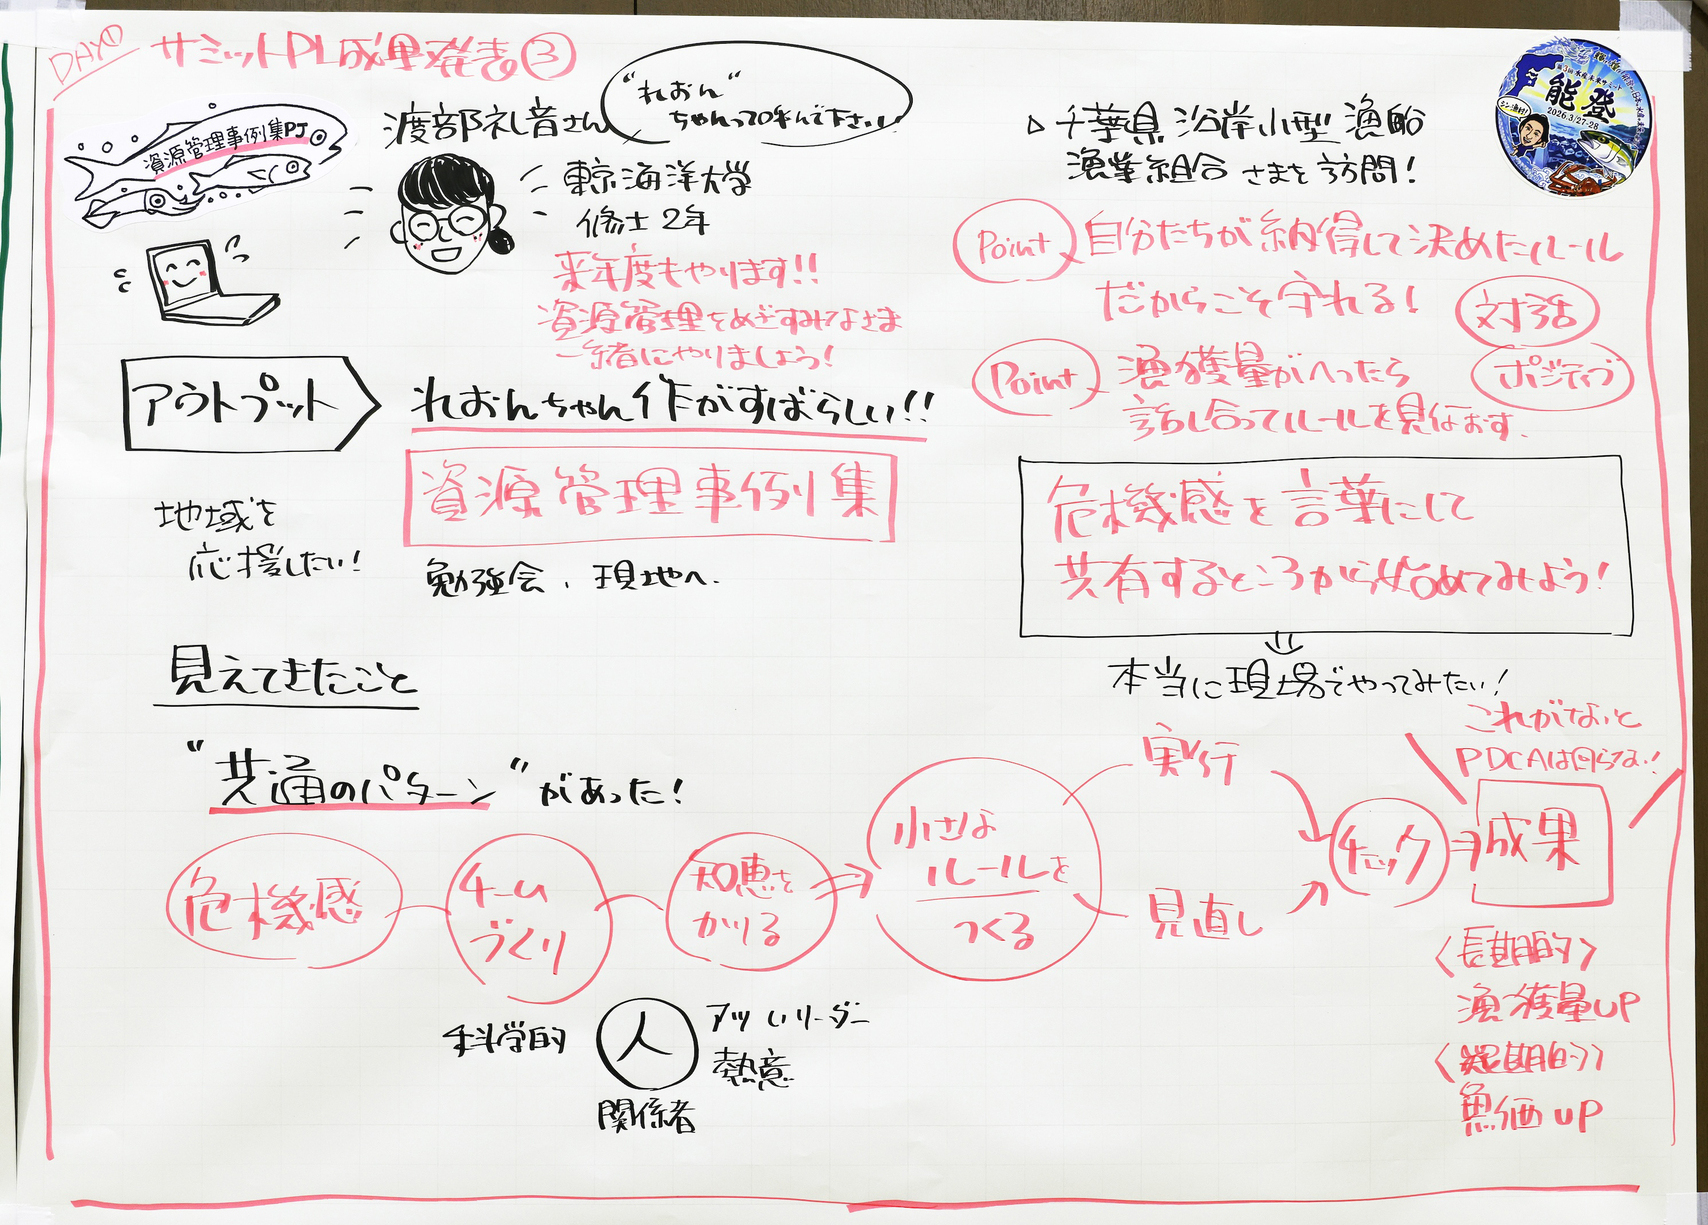 DAY①
サミットPL成果発表③
資源管理事例集PJ
渡部礼音さん
"れおん"
ちゃんって呼んで下さい！
東京海洋大学
修士2年
来年度もやります!!
資源管理をめざすみなさま
一緒にやりましょう！
アウトプット
れおんちゃん作がすばらしい!!
資源管理事例集
地域を
応援したい！
勉強会、現地へ.
見えてきたこと
"共通のパターン"があった！
危機感
チーム
づくり
知恵を
かりる
小さな
ルールを
つくる
実行
見直し
チェック
成果
これがないと
PDCAは回らない！
〈長期的〉
漁獲量UP
〈短期的〉
魚価UP
科学的
人
アツいリーダー
熱意
関係者
▷千葉県沿岸小型漁船
漁業組合さまを訪問！
Point
自分たちが納得して決めたルール
だからこそ守れる！
対話
Point
漁獲量がへったら
話し合ってルールを見なおす.
ポジティブ
危機感を言葉にして
共有するところから始めてみよう！
本当に現場でやってみたい！
第3回水産未来サミット
能登
2026.3/27-28
シン漁村！